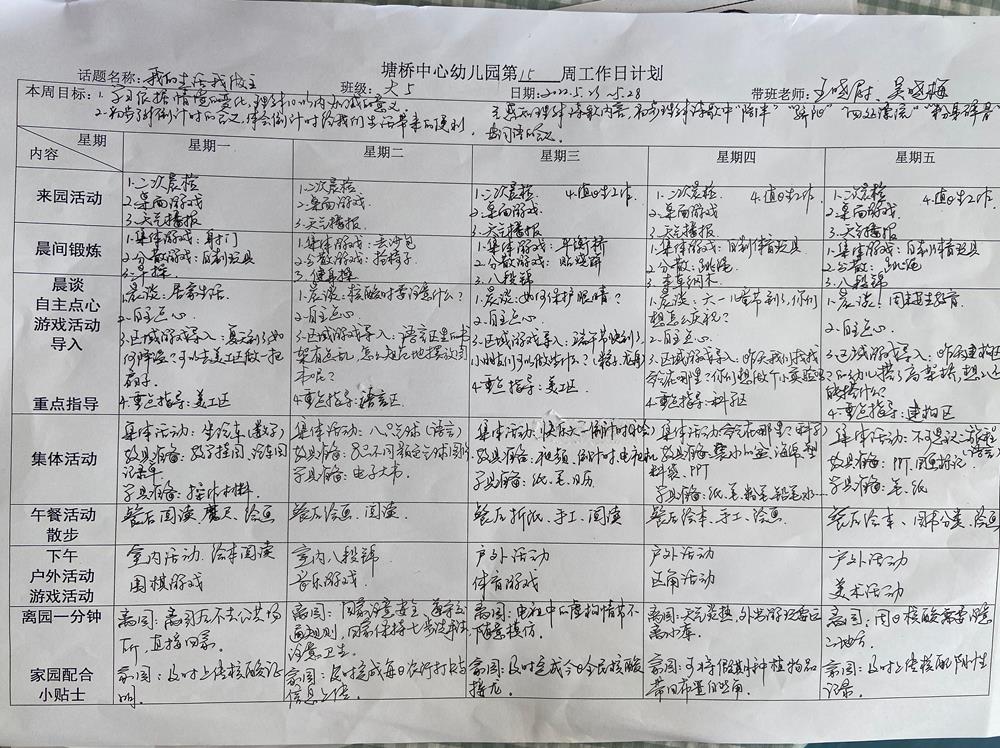 塘桥中心幼儿园第15周工作日计划
话题名称：我的生活我做主 班级：大5 日期：2022.5.23-5.28 带班老师：
本周目标：1.学习依据情境的变化，理解10以内加减的意义。
2.初步了解倒计时的意义，体会倒计时给我们生活带来的便利。
星期
内容
星期一
星期二
星期三
星期四
星期五
来园活动
1.二次晨检
2.桌面游戏
3.天气播报
1.二次晨检
2.桌面游戏
3.天气播报
1.二次晨检 4.值日生工作
2.桌面游戏
3.天气播报
1.二次晨检 4.值日生工作
2.桌面游戏
3.天气播报
1.二次晨检 4.值日生工作
2.桌面游戏
3.天气播报
晨间锻炼
1.集体游戏：射门
2.分散游戏：自制玩具
3.早操
1.集体游戏：丢沙包
2.分散游戏：
3.健身操
1.集体游戏：平衡桥
2.分散游戏：贴烧饼
3.八段锦
1.集体游戏：自制体育玩具
2.分散：跳绳
1.集体游戏：自制体育玩具
2.分散：跳绳
3.八段锦
晨谈
自主点心
游戏活动
导入
重点指导
1.晨谈：居家生活
2.自主点心
3.区域游戏导入：夏天到了如
何降温？可以去美工区做一把
扇子。
4.重点指导：美工区
1.晨谈：核酸时要注意什么？
2.自主点心
3.区域游戏导入：语言区里的书
架有点乱，怎么
4.重点指导：语言区
1.晨谈：如何保护眼睛？
2.自主点心
3.区域游戏导入：端午节快到了，
小朋友们可以做些什么？
4.重点指导：美工区
1.晨谈：六一儿童节到了，你们
想怎么庆祝？
2.自主点心
3.区域游戏导入：昨天我们找找
空气在哪里？你们想做个小实验吗？
4.重点指导：科学区
1.晨谈：周末卫生教育
2.自主点心
3.区域游戏导入：昨天建构区
4.重点指导：建构区
集体活动
集体活动：坐汽车（数学）
教具准备：数字挂图、
记录单
学具准备：操作材料
集体活动：八只气球（语言）
教具准备：8只不同颜色气球图片
学具准备：电子大书
集体活动：快乐大倒计时
教具准备：视频、倒计时电视机
学具准备：纸、笔、日历
集体活动：空气在哪里？（科学）
PPT
集体活动：
教具准备：PPT、图画标记
学具准备：笔、纸
午餐活动
散步
餐后阅读、魔尺、绘画
餐后绘画、阅读。
餐后折纸、手工、阅读
餐后绘本、手工、绘画。
餐后绘本、图书分类、绘画
下午
户外活动
游戏活动
室内活动：绘本阅读
围棋游戏
室内八段锦
音乐游戏。
户外活动
体育游戏
户外活动
区角活动
户外活动
美术活动
离园一分钟
离园：离园后不去公共场
所，直接回家。
离园：回家注意安全，遵守交
通规则，回家保持七步洗手法，
注意卫生。
离园：电视中的虚构情节不
随意模仿。
离园：天气炎热，外出游玩要远
离水库。
离园：周日核酸需要
家园配合
小贴士
家园：及时上传核酸证
明。
家园：及时完成每日农行打卡
信息上传。
家园：及时完成今日全民核酸
接龙。
家园：可将假期种植物品
带回布置自然角。
家园：及时上传核酸阴性
记录。